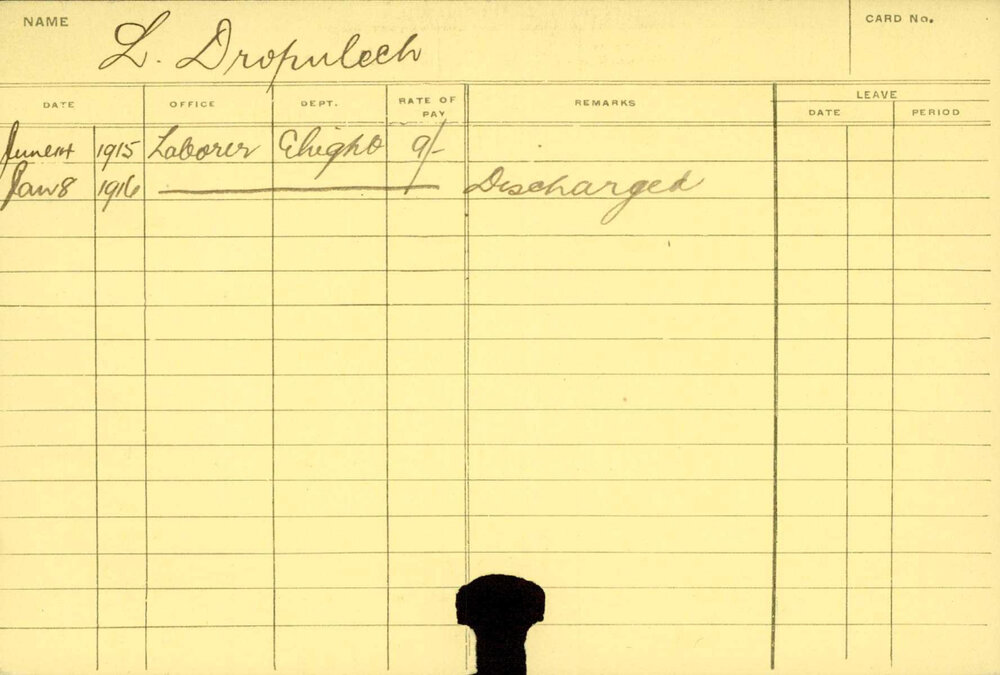 NAME
CARD No.
L. Dropulech
DATE OFFICE DEPT. RATE OF PAY REMARKS LEAVE
DATE PERIOD
1915 Laborer 9/-
Jan 8 1916 Discharged